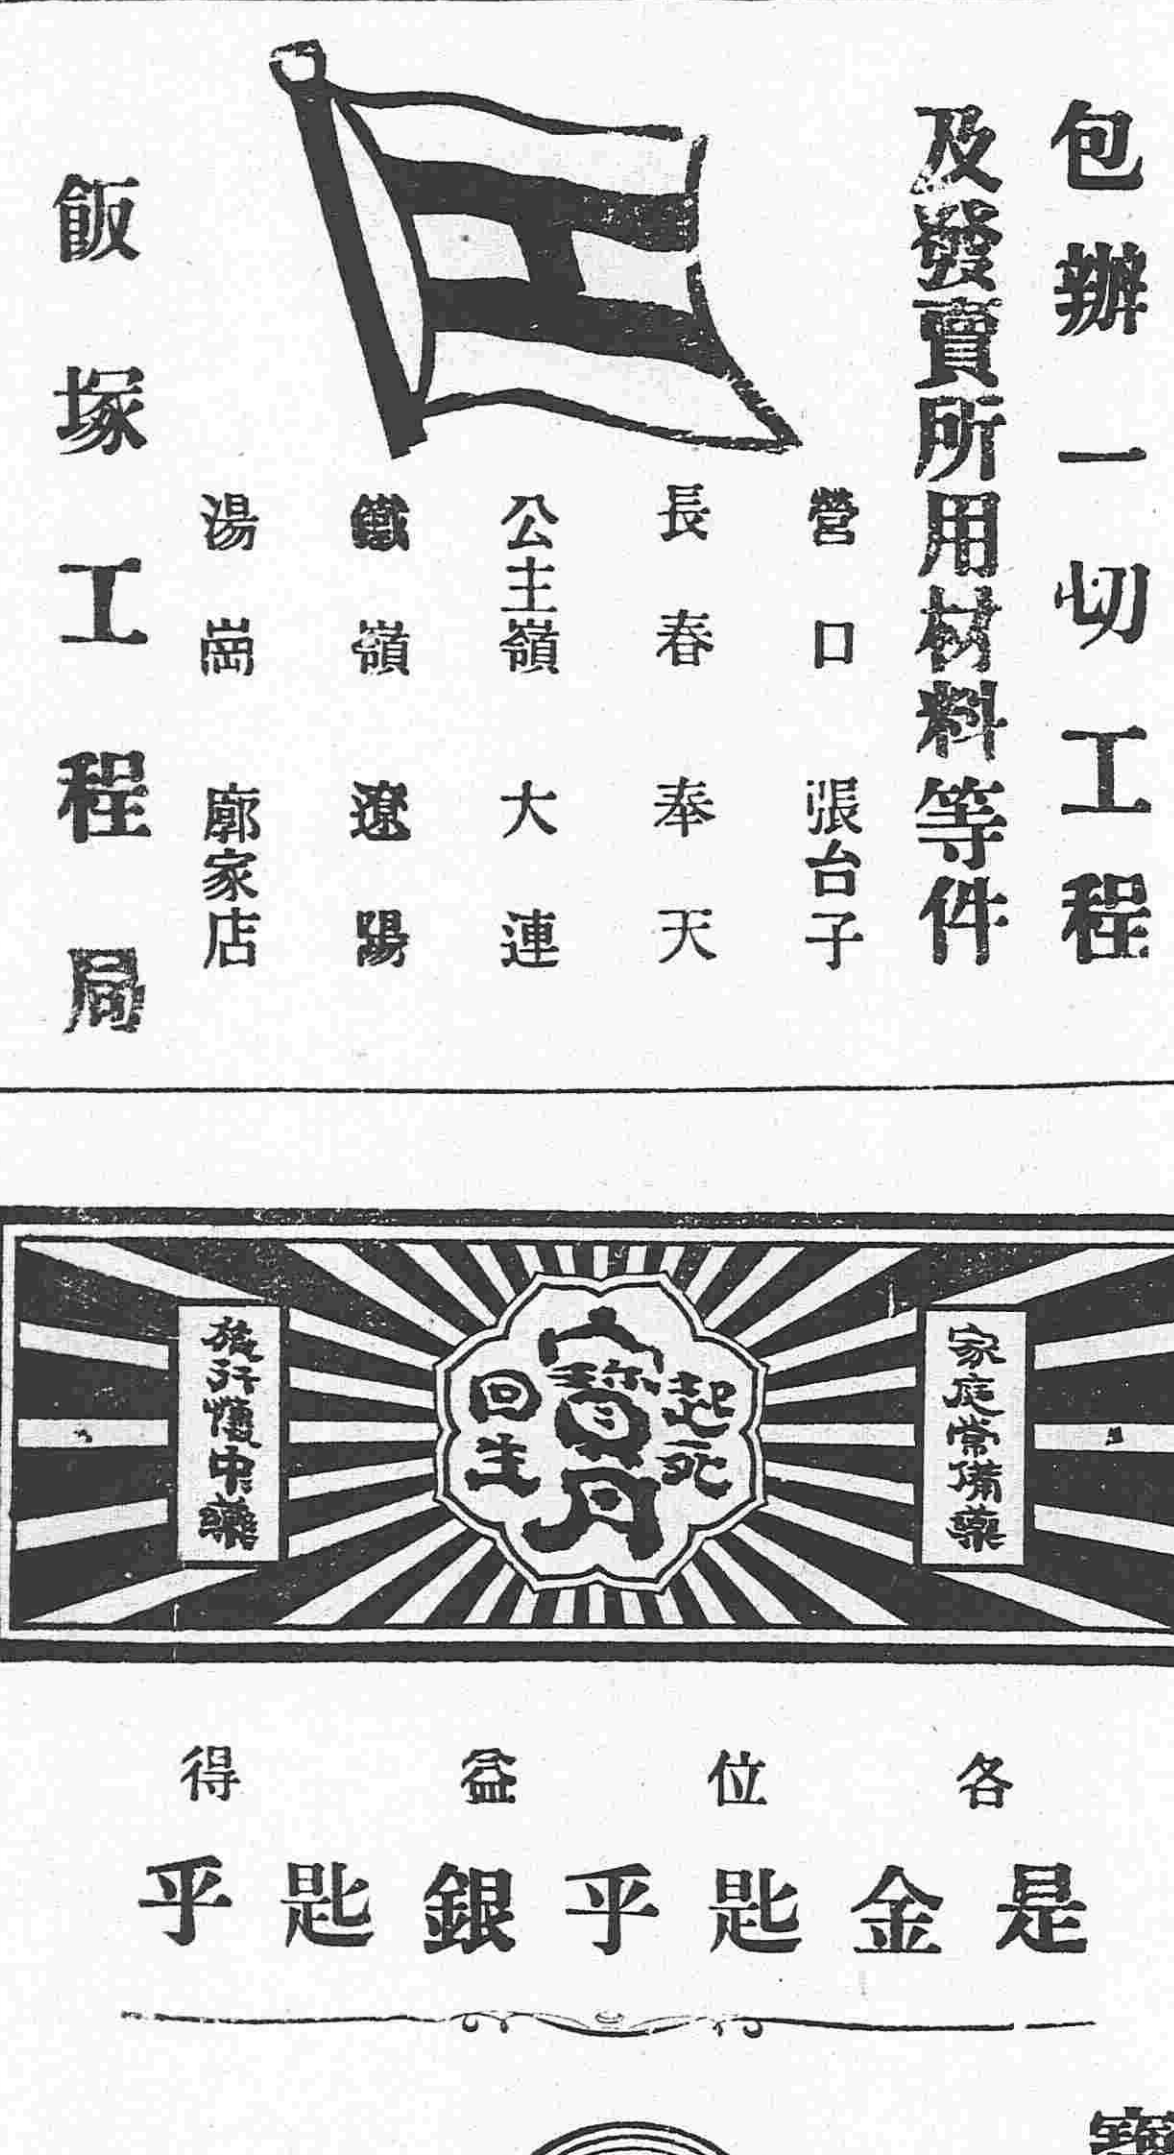 包辦一切工程
及發賣所用材料等件
營口 張台子
長春 奉天
公主嶺 大連
鐵嶺 遼陽
湯崗 廓家店
飯塚工程局
家庭常備藥
起死
寶丹
回生
旅行懷中藥
各位益得
是金匙乎銀匙乎
寶